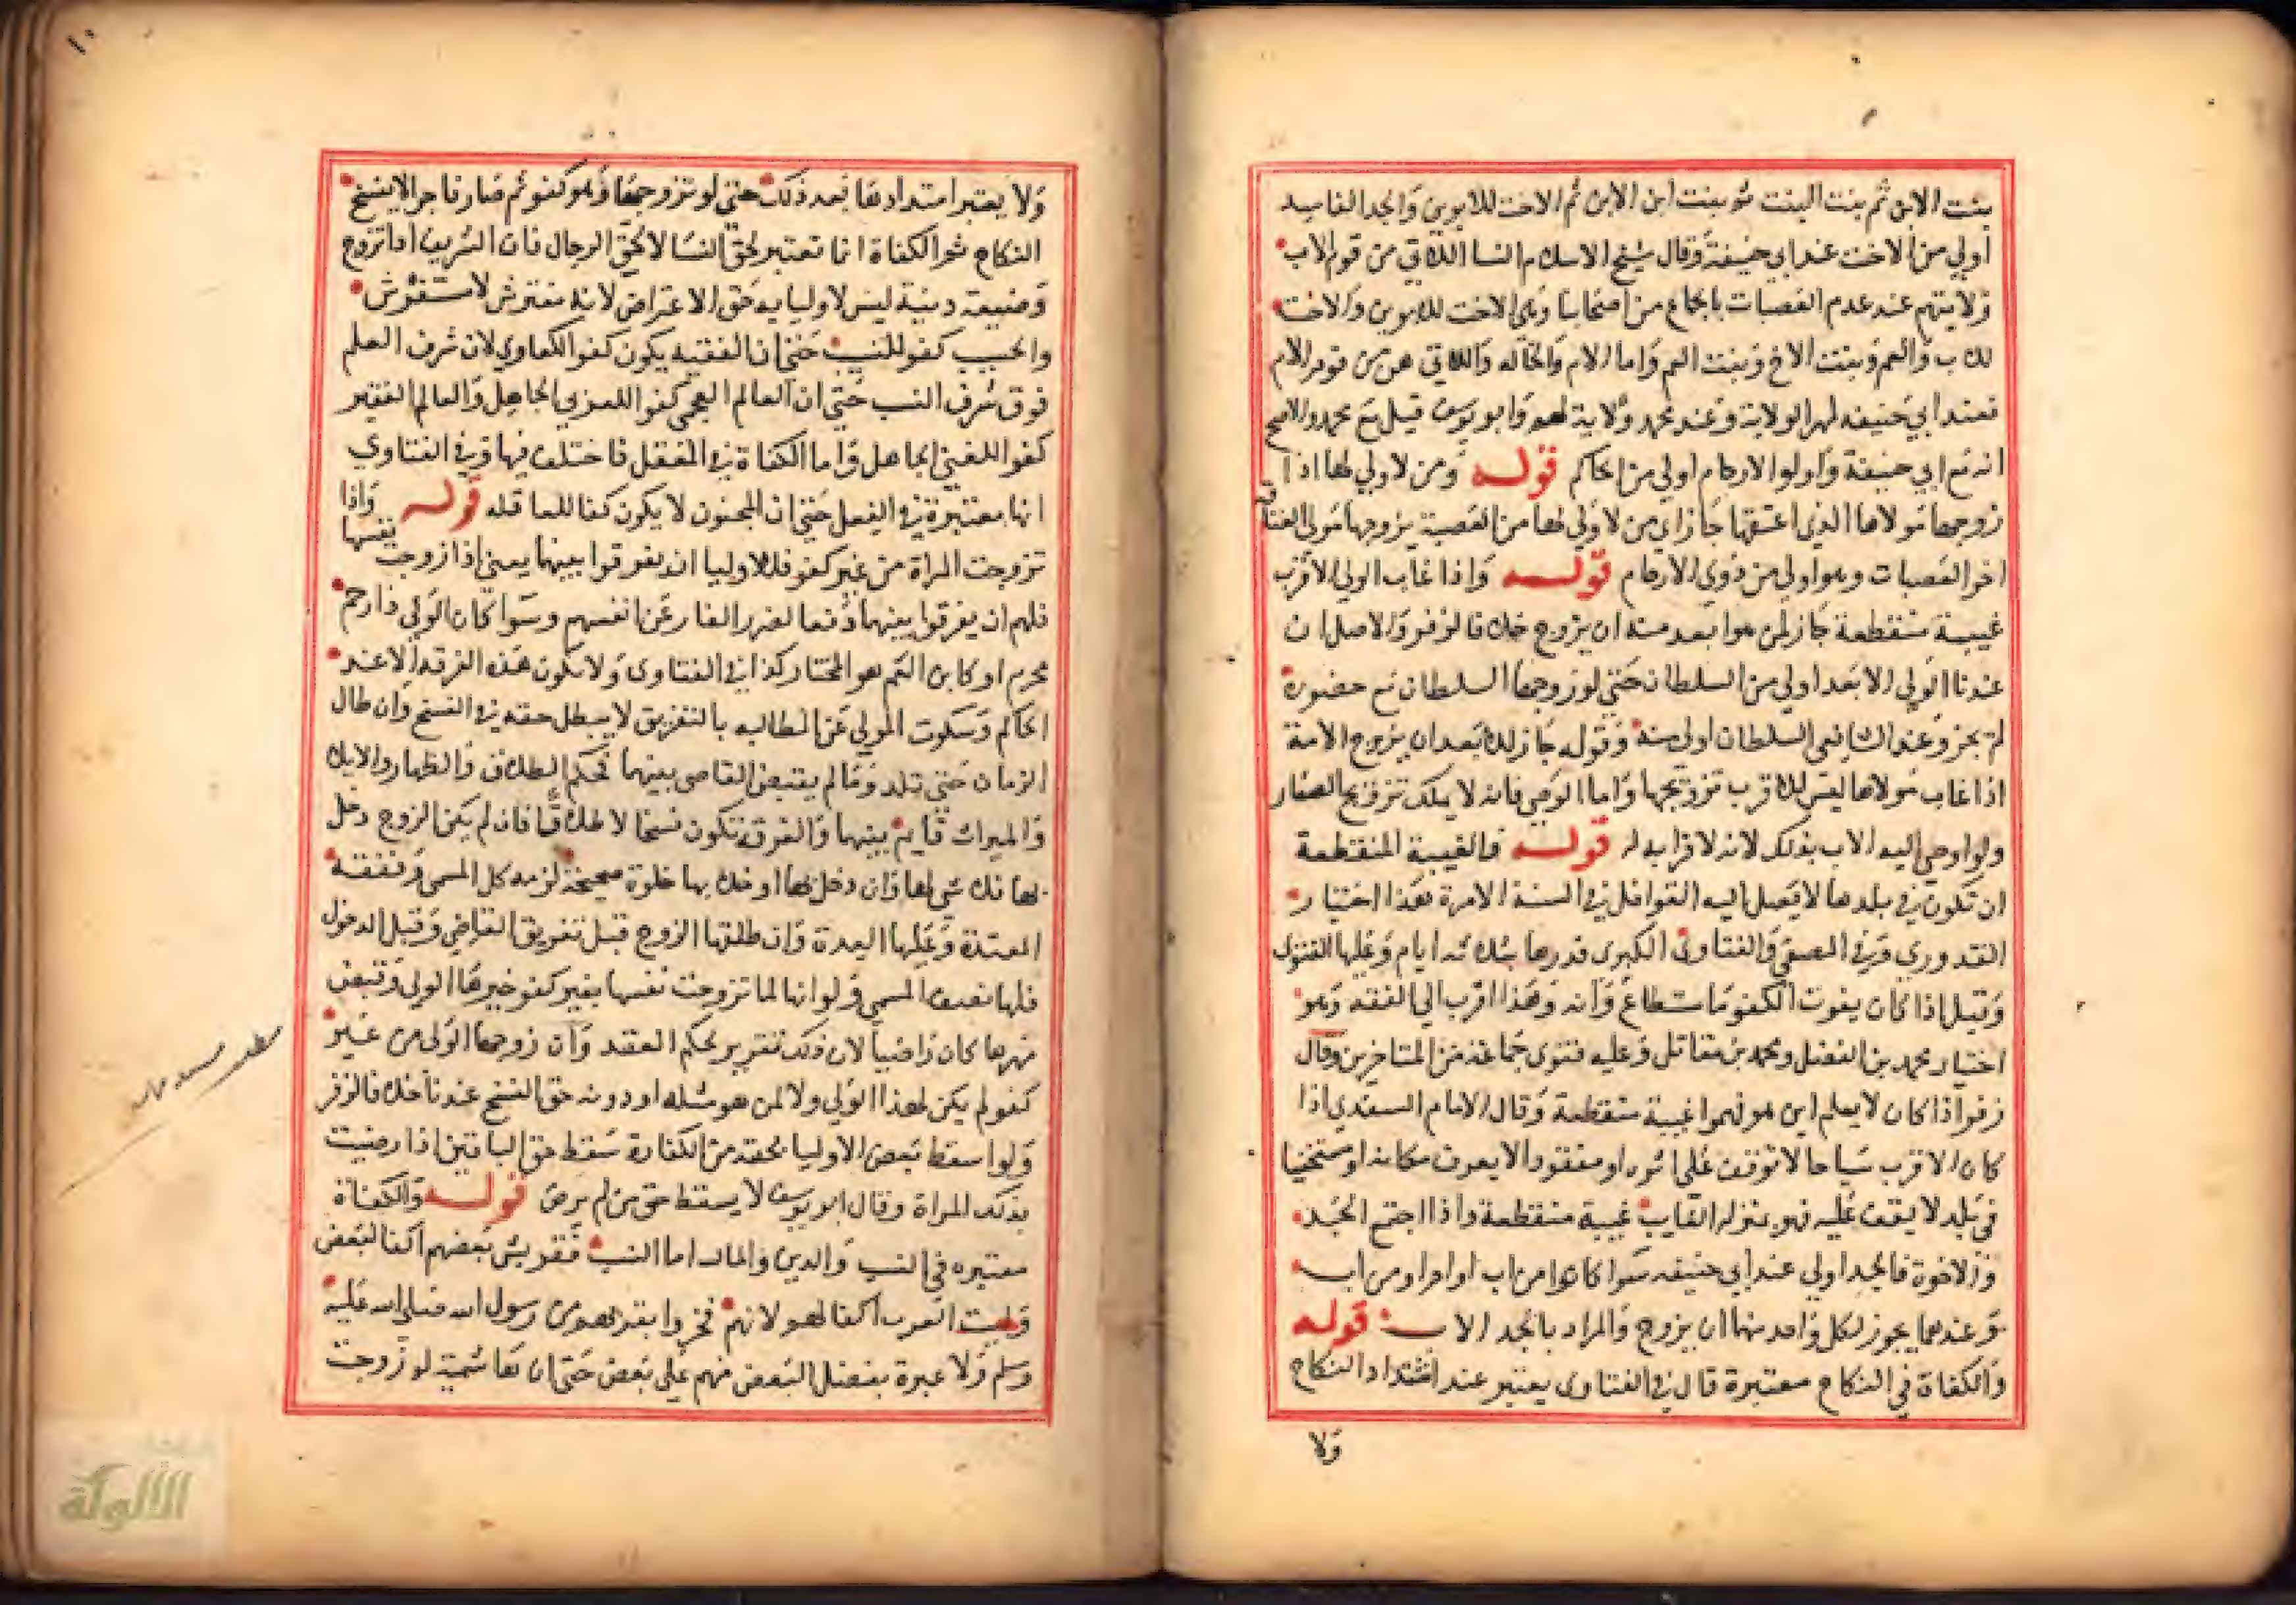 بنت الابن ثم بنت البنت ثم بنت ابن الابن ثم الاخت للابوين والجد الفاسد
اولي من الاخت عند ابي حنيفة وقال شيخ الاسلام النسا اللاتي من قوم الاب
ولايتهم عند عدم العصبات باجماع من اصحابنا وهي الاخت للابوين والاخت
للاب والعم وبنت الاخ وبنت العم واما الام والخاله واللاتي هن من قوم الام
فعند ابي حنيفه لهم الولاية وعند محمد ولاية لهم وابو يوسف قيل مع محمد والاصح
انه مع ابي حنيفة واولوا الارحام اولي من الحاكم قوله ومن لا ولي لها اذا
زوجها مولاها الذي اعتقها جاز اي من لا ولي لها من العصبة يزوجها مولي العتاقة
اخر العصبات وهو اولي من ذوي الارحام قوله واذا غاب الولي الاقرب
غيبة منقطعة جاز لمن هو ابعد منه ان يزوج خلافا لزفر والاصل ان
عندنا الولي الابعد اولي من السلطان حتي لو زوجها السلطان مع حضوره
لم يجز وعند الشافعي السلطان اولي منه وقوله جاز للابعد ان يزوج الامة
اذا غاب مولاها ليس للاقرب تزويجها واما الوصي فانه لا يملك تزويج الصغار
ولو اوصي اليه الاب بذلك لانه لا قرابه له قوله فالغيبة المنقطعة
ان تكون في بلدها لا يصل اليه القوافل في السنة الا مرة هذا اختيار
القدوري وفي المصفي والفتاوي الكبرى قدرها بثلاثه ايام وعليها الفتوى
وقيل اذا كان يفوت الكفو وهذا اقرب الي الفقه وهو
اختيار محمد بن الفضل ومحمد بن مقاتل وعليه فتوى جماعة من المتاخرين وقال
زفر اذا كان لا يعلم اين هو فهو غيبة منقطعة وقال الامام السغدي اذا
كان الاقرب سياحا لا توقف علي اثره او مفقودا لا يعرف مكانه او مستخفيا
في بلد لا يقف عليه فهو بمنزلة الغايب غيبة منقطعة واذا اجتمع الجد
والاخوة فالجد اولي عند ابي حنيفه سوا كانوا من اب او ام او من اب
وعندهما يجوز لكل واحد منهما ان يزوج والمراد بالجد الاب قوله
والكفاة في النكاح معتبرة قال في الفتاوى يعتبر عند ابتداء النكاح
ولا
١٠
ولا يعتبر امتدادها بعد ذلك حتي لو تزوجها وهو كفو ثم صار فاجر الا يفسخ
النكاح ثم الكفاة انما تعتبر لحق النسا لا لحق الرجال فان الشريف اذا تزوج
وضيعة دنية ليس لاوليايه حق الاعتراض لانه مفترش لا مستفرش
والحسيب كفو للنسيب حتي ان الفقيه يكون كفو العلوي لان شرف العلم
فوق شرف النسب حتي ان العالم العجمي كفو اللعربي الجاهل والعالم الفقير
كفو اللغني الجاهل واما الكفاة في العقل فاختلف فيها وفي الفتاوي
انها معتبرة في العقل حتي ان المجنون لا يكون كفا للعاقله قوله واذا
تزوجت المراة من غير كفو فللاوليا ان يفرقوا بينهما يعني اذا زوجت نفسها
فلهم ان يفرقوا بينهما دفعا لضرر العار عن انفسهم وسوا كان الولي ذا رحم
محرم او كابن العم هو المختار كذا في الفتاوى ولا تكون هذه الفرقه الا عند
الحاكم وسكوت الولي عن المطالبه بالتفريق لا يبطل حقه في الفسخ وان طال
الزمان حتي تلد وما لم يقض القاضي بينهما فحكم الطلاق والظهار والايلا
والميراث قايم بينهما والفرقة تكون فسخا لا طلاقا فان لم يكن الزوج دخل
بها فلا شي لها وان دخل بها او خلا بها خلوة صحيحة لزمه كل المسمي ونفقة
العدة وعليها العدة وان طلقها الزوج قبل تفريق القاضي وقبل الدخول
فلها نصف المسمي ولو انها لما تزوجت نفسها بغير كفو الولي وقبض
مهرها كان راضيا لان ذلك تقرير لحكم العقد وان زوجها الولي من غير
كفو لم يكن لهذا الولي ولا لمن هو مثله او دونه حق الفسخ عندنا خلافا لزفر
ولو اسقط بعض الاوليا حقه من الكفاة سقط حق الباقين اذا رضيت
بذلك المراة وقال ابو يوسف لا يسقط حق من لم يرض قوله والكفاة
معتبره في النسب والدين والمال اما النسب فقريش بعضهم اكفا لبعض
وليست العرب اكفا لهم لانهم فخروا بقربهم من رسول الله صلي الله عليه
وسلم ولا عبرة بفضل البعض منهم علي بعض حتي ان هاشمية لو زوجت
الألوكة